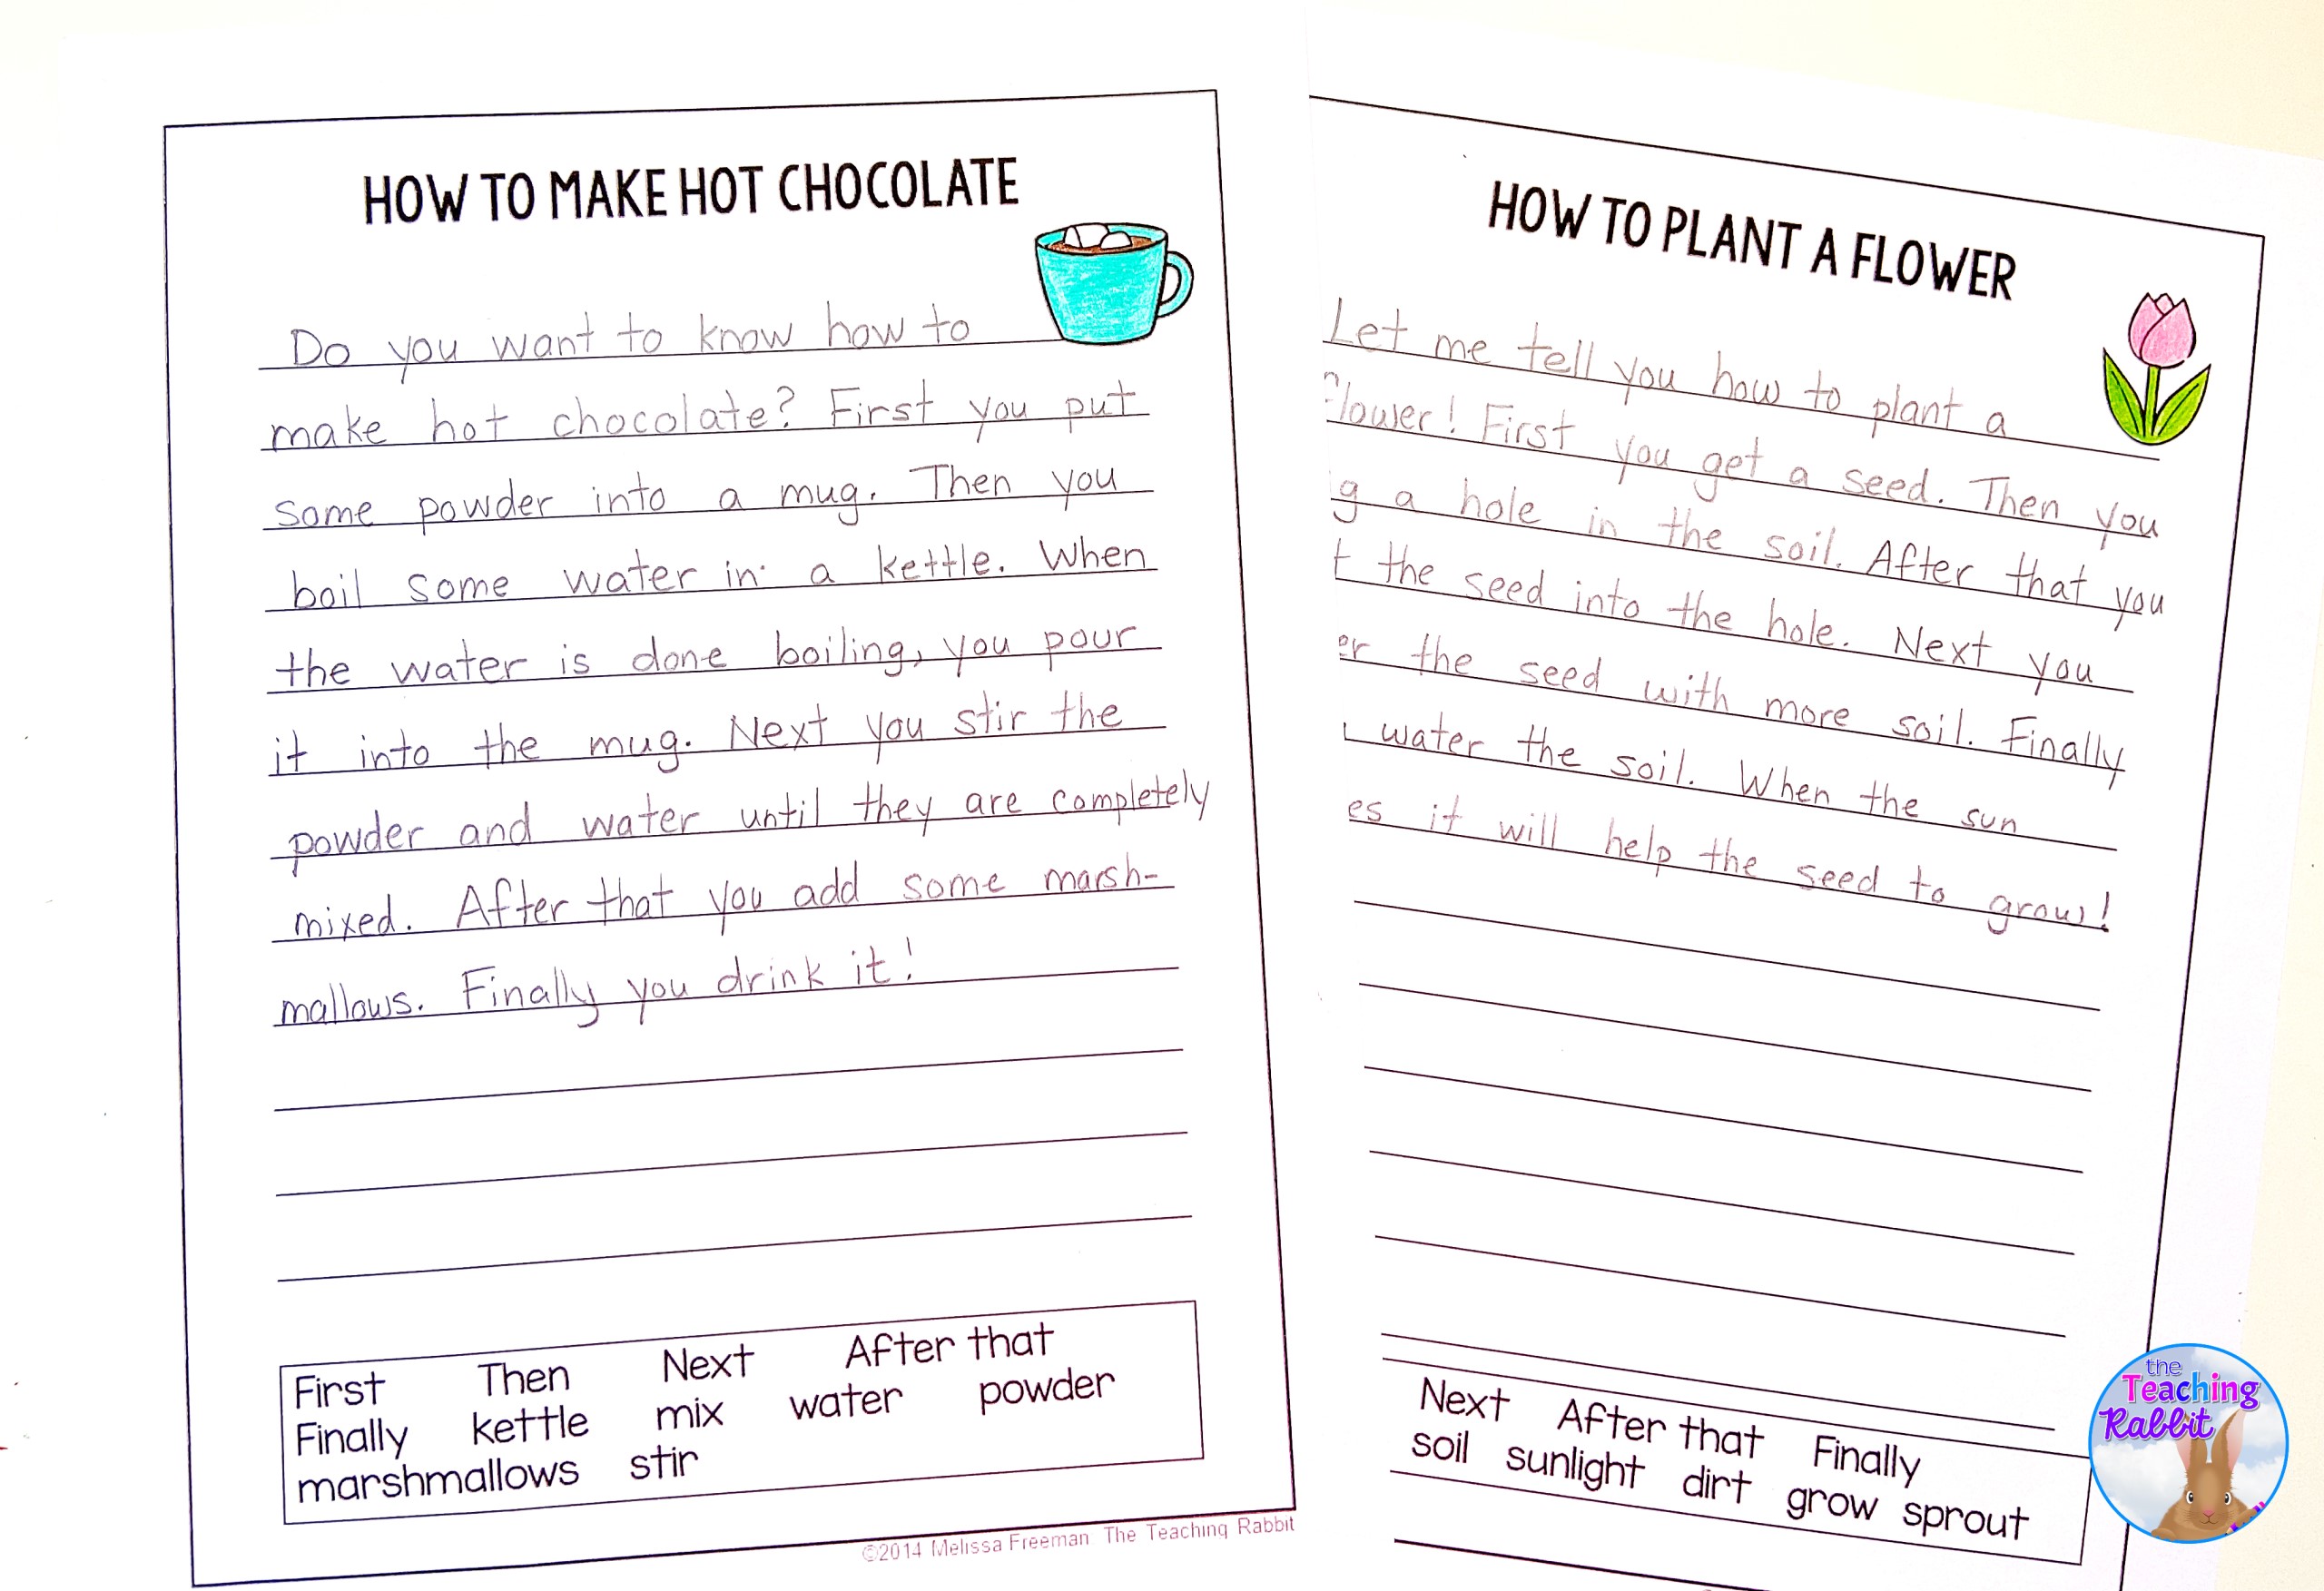 HOW TO MAKE HOT CHOCOLATE
Do you want to know how to
make hot chocolate? First you put
some powder into a mug. Then you
boil some water in a kettle. When
the water is done boiling, you pour
it into the mug. Next you stir the
powder and water until they are completely
mixed. After that you add some marsh-
mallows. Finally you drink it!
First Then Next After that
Finally kettle mix water powder
marshmallows stir
©2014 Melissa Freeman The Teaching Rabbit
HOW TO PLANT A FLOWER
Let me tell you how to plant a
flower! First you get a seed. Then you
a hole in the soil. After that you
the seed into the hole. Next you
the seed with more soil. Finally
water the soil. When the sun
it will help the seed to grow!
Next After that Finally
soil sunlight dirt grow sprout
the
Teaching
Rabbit